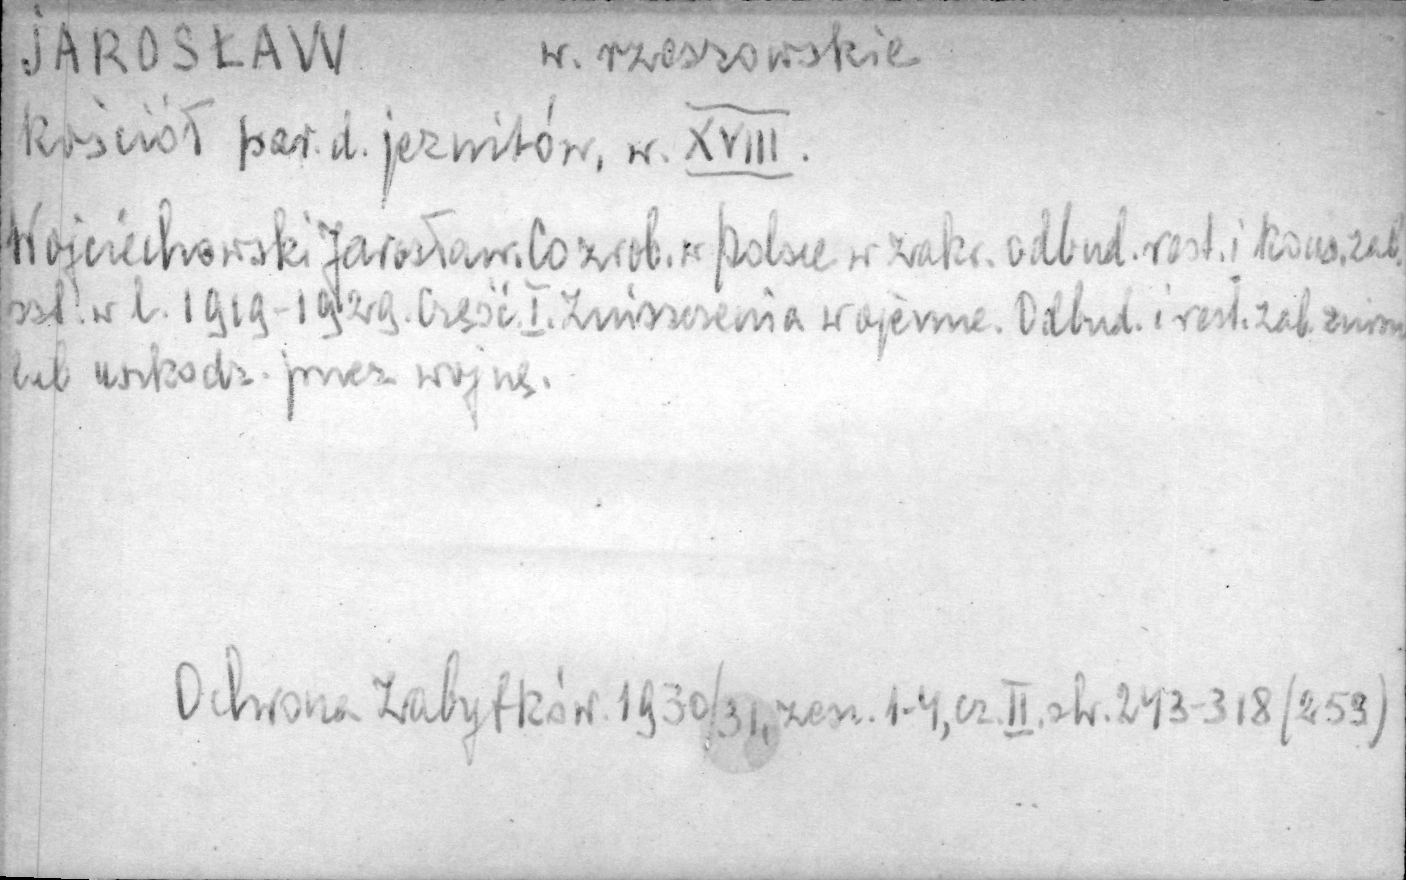 JAROSŁAW w. rzeszowskie
Kościół par. d. jezuitów, w. XVIII.
Wojciechowski Jarosław. Co zrob. w Polsce w zakr. odbud. rest. i kons. zab.
szt. w l. 1919-1929. Część. I. Zniszczenia wojenne. Odbud. i rest. zab. zniszcz
lub uszkodz. przez wojnę.
Ochrona Zabytków. 1930/31, zesz. 1-4, cz. II. str. 243-318 (259)